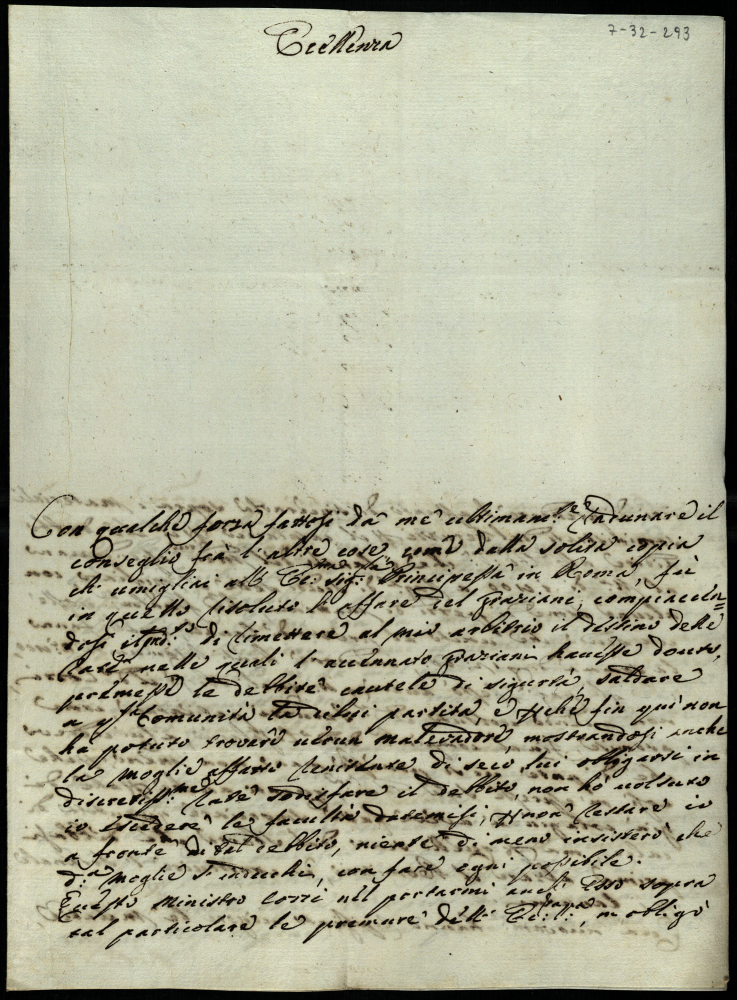 7-32-293
Eccellenza
Con qualche forza fattosi dà me ultimam.te radunare il
conseglio frà l'altre cose, come dalla solita copia
ch'umigliai all' Ecc: Sig.ra Principessa in Roma, fù
in questo risoluto l'affare del Graziani, compiacen=
dosi il di rimettere al mio arbitrio il destino delle
rate, nelle quali l'accennato Graziani havesse douto,
premesse le debite cautele di sigurtà, saldare
a q.sta Comunità la partita, e perche fin qui non
ha potuto trovare ueruna malevadore, mostrandosi anche
la moglie affatto renitente di seco lui obligarsi in
discretiss.me rate sodisfare il debbito, non hò uolsuto
io eccedere le facultà datemisi, p non restare io
a fronte di tal debbito, niente di meno insisterò che
d.a moglie s'induchi, con fare ogni possibile.
Questo Ministro Corsi nel portarmi anch' Esso sopra
tal particolare le premure dell' Ecc: , m'obligò